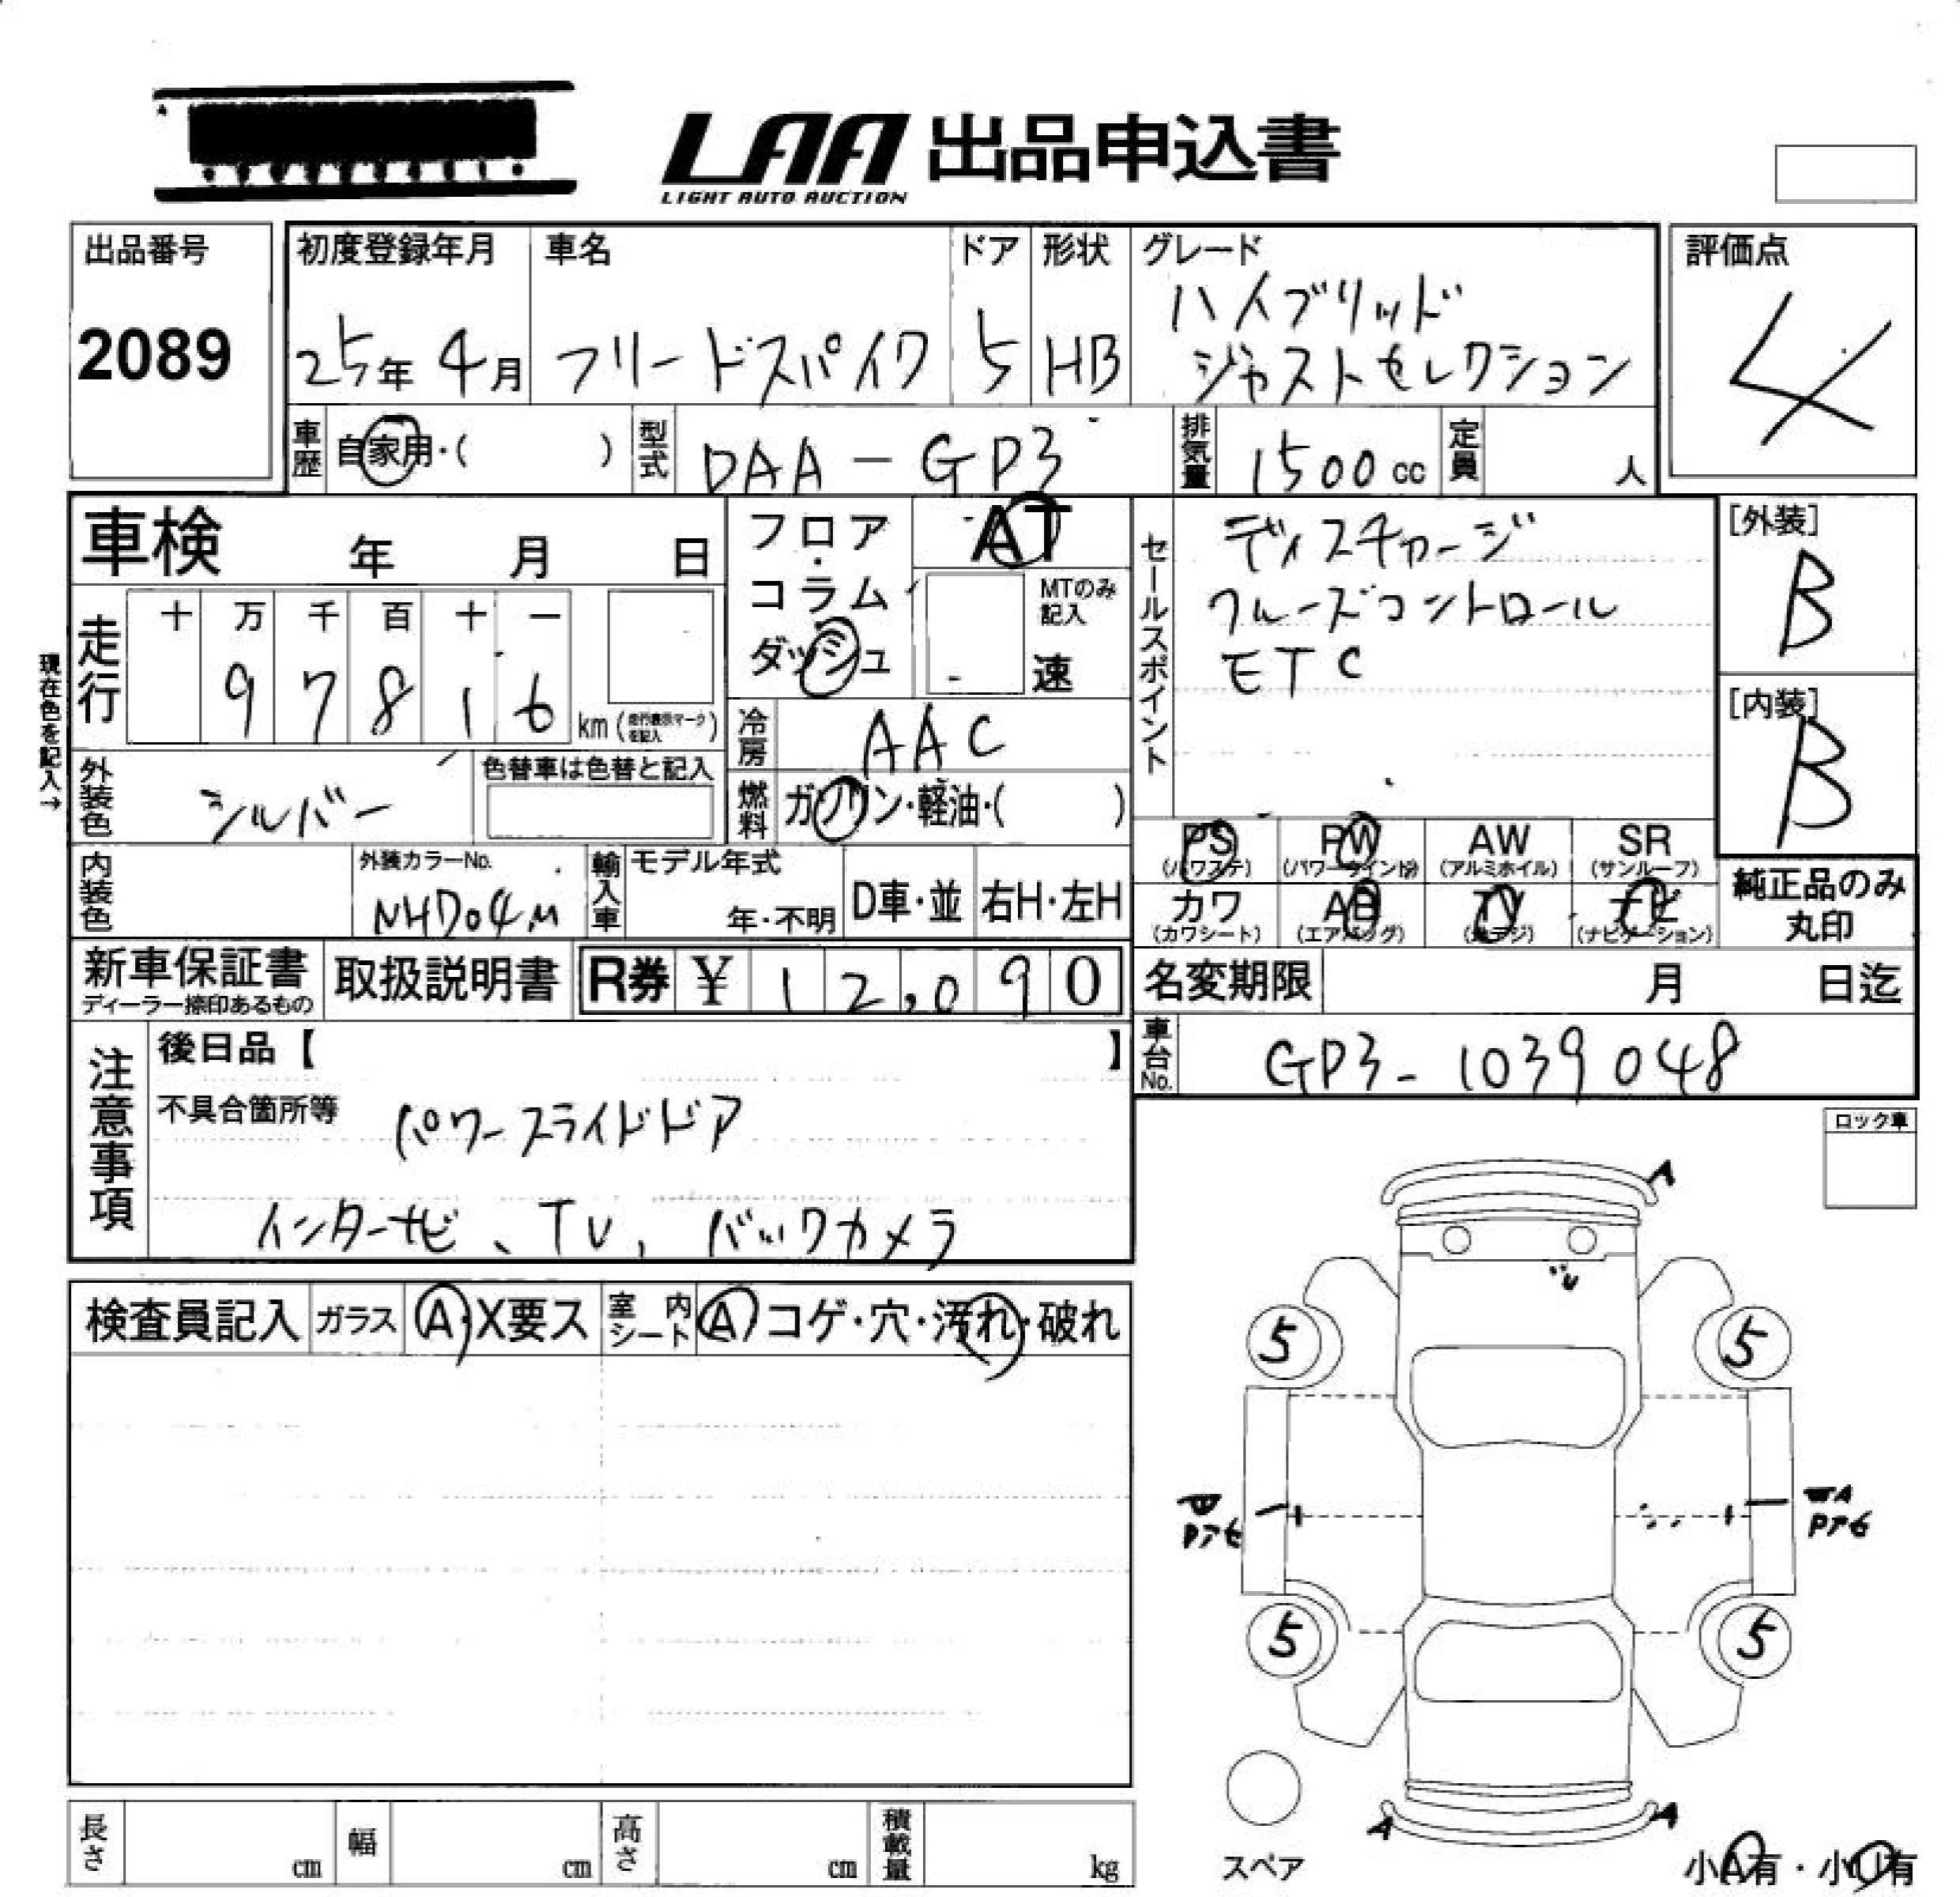 LAA 出品申込書
LIGHT AUTO AUCTION
出品番号
2089
初度登録年月
25年 4月
車名
フリードスパイク
ドア
5
形状
HB
グレード
ハイブリッド
ジャストセレクション
評価点
4
車歴
自家用・( )
型式
DAA-GP3
排気量
1500cc
定員
人
車検 年 月 日
フロア・コラム
ダッシュ
AT
MTのみ
記入
速
セールスポイント
ディスチャージ
クルーズコントロール
ETC
[外装]
B
[内装]
B
現在色を記入→
走行
十 万 千 百 十 一
9 7 8 1 6
km
冷房
AAC
外装色
シルバー
色替車は色替と記入
燃料
ガソリン・軽油・( )
PS
(パワステ)
PW
(パワーウインドウ)
AW
(アルミホイル)
SR
(サンルーフ)
カワ
(カワシート)
AB
(エアバッグ)
TV
(地デジ)
ナビ
(ナビゲーション)
純正品のみ
丸印
内装色
外装カラーNo.
NHD04M
輸入車
モデル年式
年・不明
D車・並
右H・左H
新車保証書
ディーラー捺印あるもの
取扱説明書
R券 ¥ 12,090
名変期限 月 日迄
車台No.
GP3-1039048
注意事項
後日品【 】
不具合箇所等
パワースライドドア
インターナビ、TV、バックカメラ
ロック車
A
検査員記入
ガラス
A・X要ス
室内
シート
A コゲ・穴・汚れ・破れ
5
5
5
5
A
A
スペア
小A有・小U有
長さ
cm
幅
cm
高さ
cm
積載量
kg